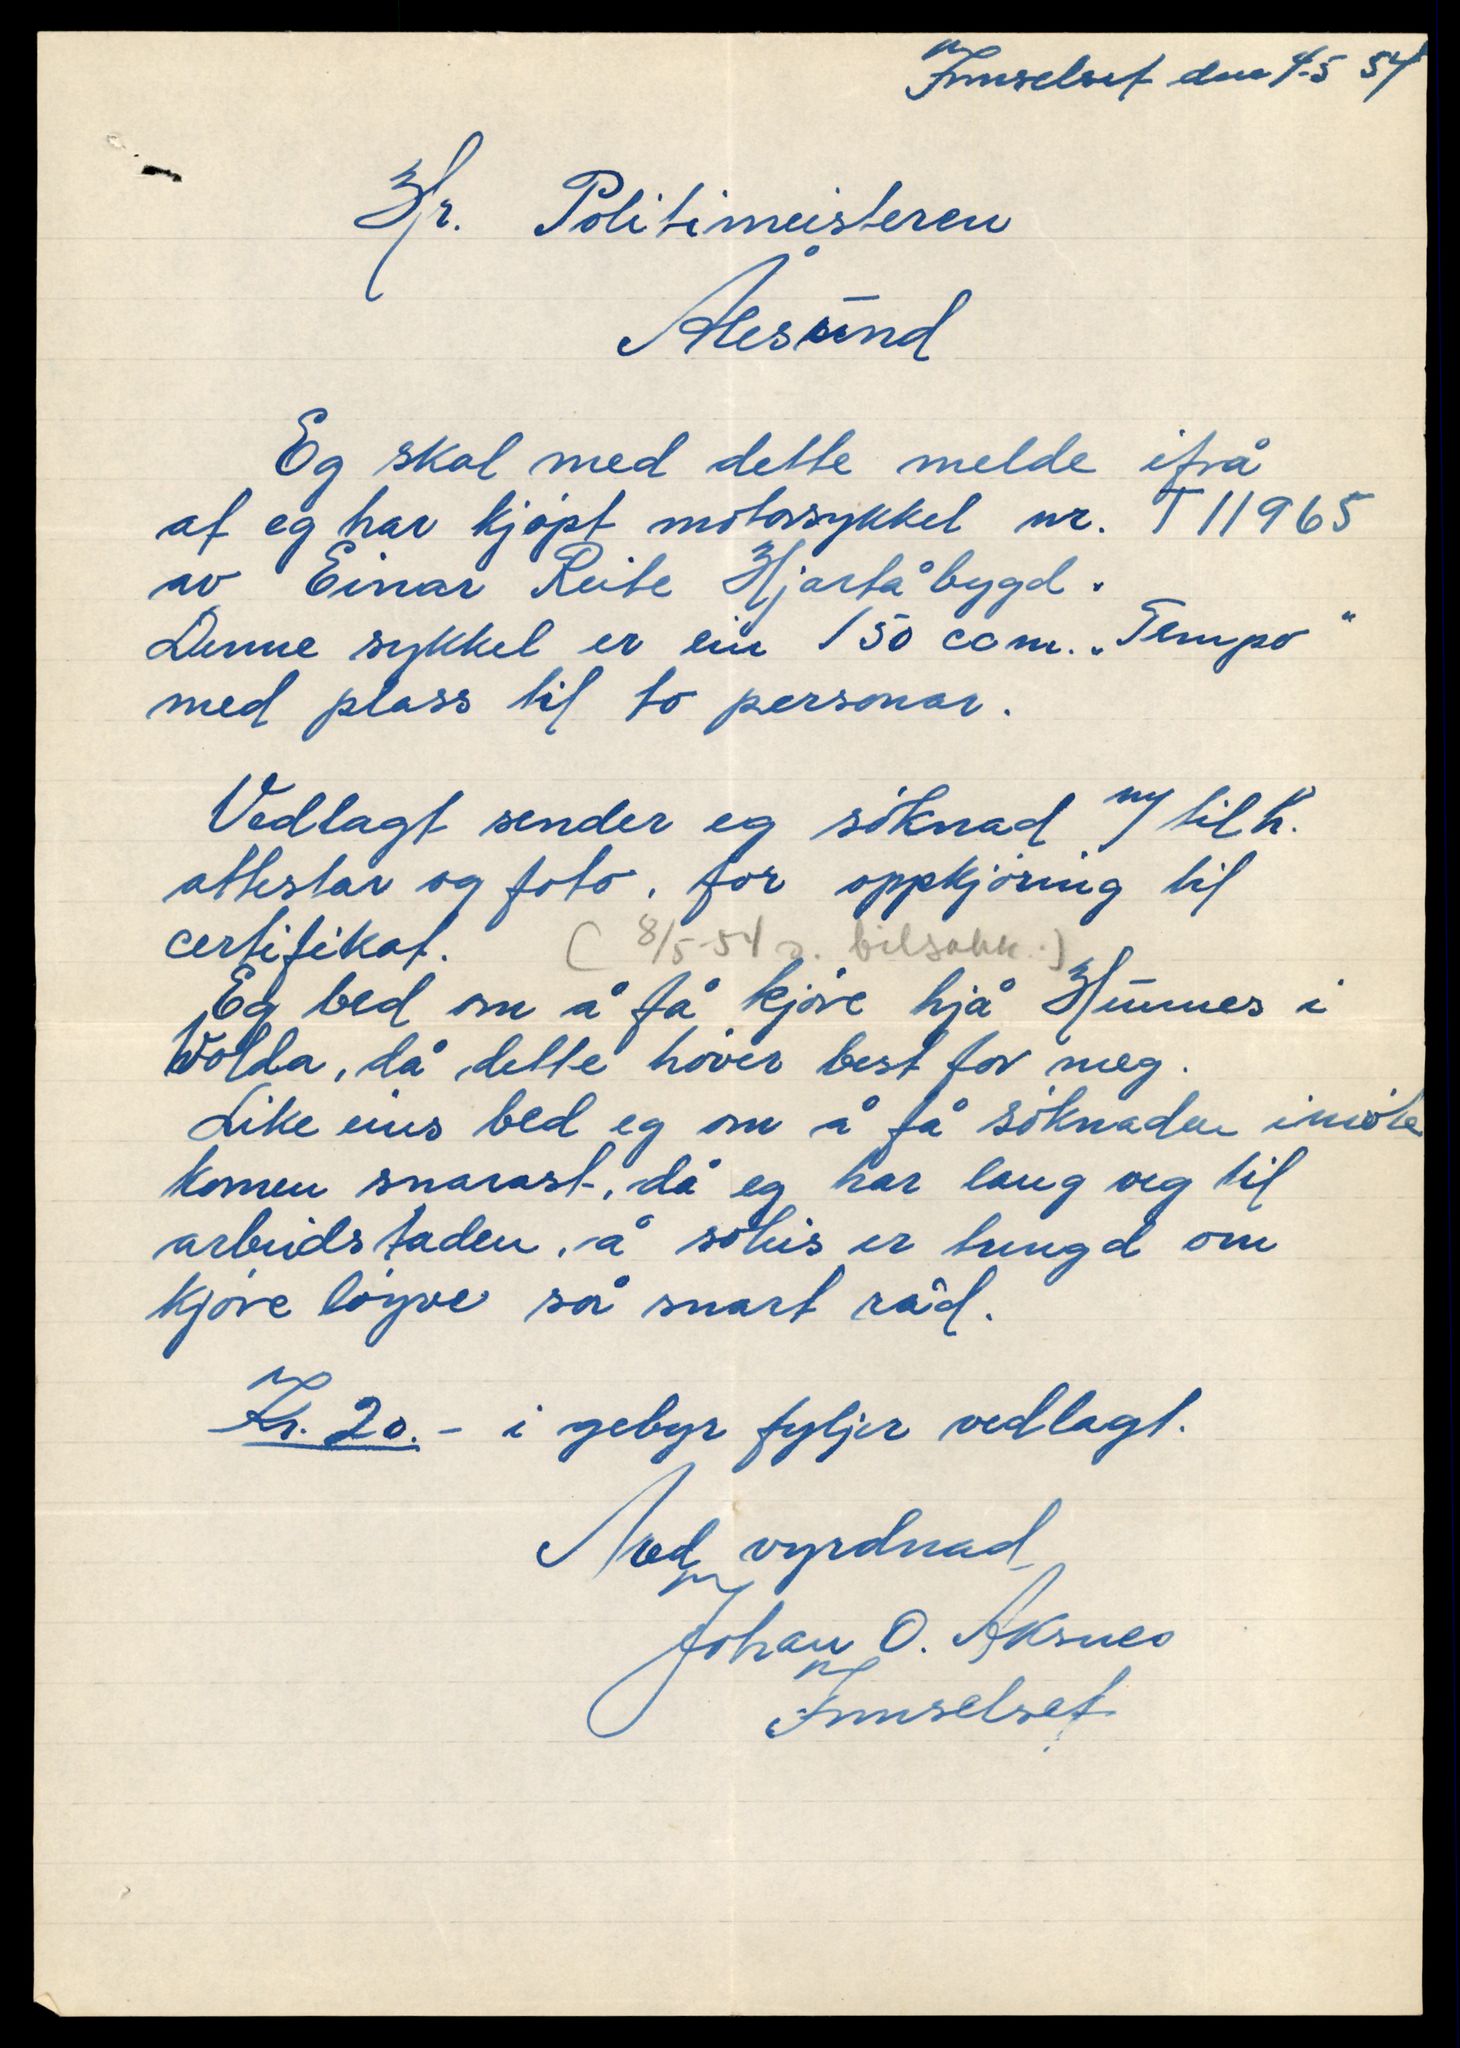 Innselset den 4-5 54
Hr. Politimeisteren
Ålesund
Eg skal med dette melde ifrå
at eg har kjøpt motorsykkel nr. T 11965
av Einar Reite Hjartåbygd.
Denne sykkel er ein 150 ccm. „Tempo"
med plass til to personar.
Vedlagt sender eg söknad m/ tilh.
attestar og foto. for oppkjöring til
certifikat. (8/5-54 bilsakk.)
Eg bed om å få kjöre hjå Hunnes i
Wolda, då dette höver best for meg.
Like eins bed eg om å få söknaden imöte
komen snarast, då eg har lang veg til
arbeidstaden, å soleis er trengd om
kjöre löyve så snart råd.
Kr. 20.- i gebyr fyljer vedlagt.
Med vyrdnad
Johan O. Aksnes
Innselset